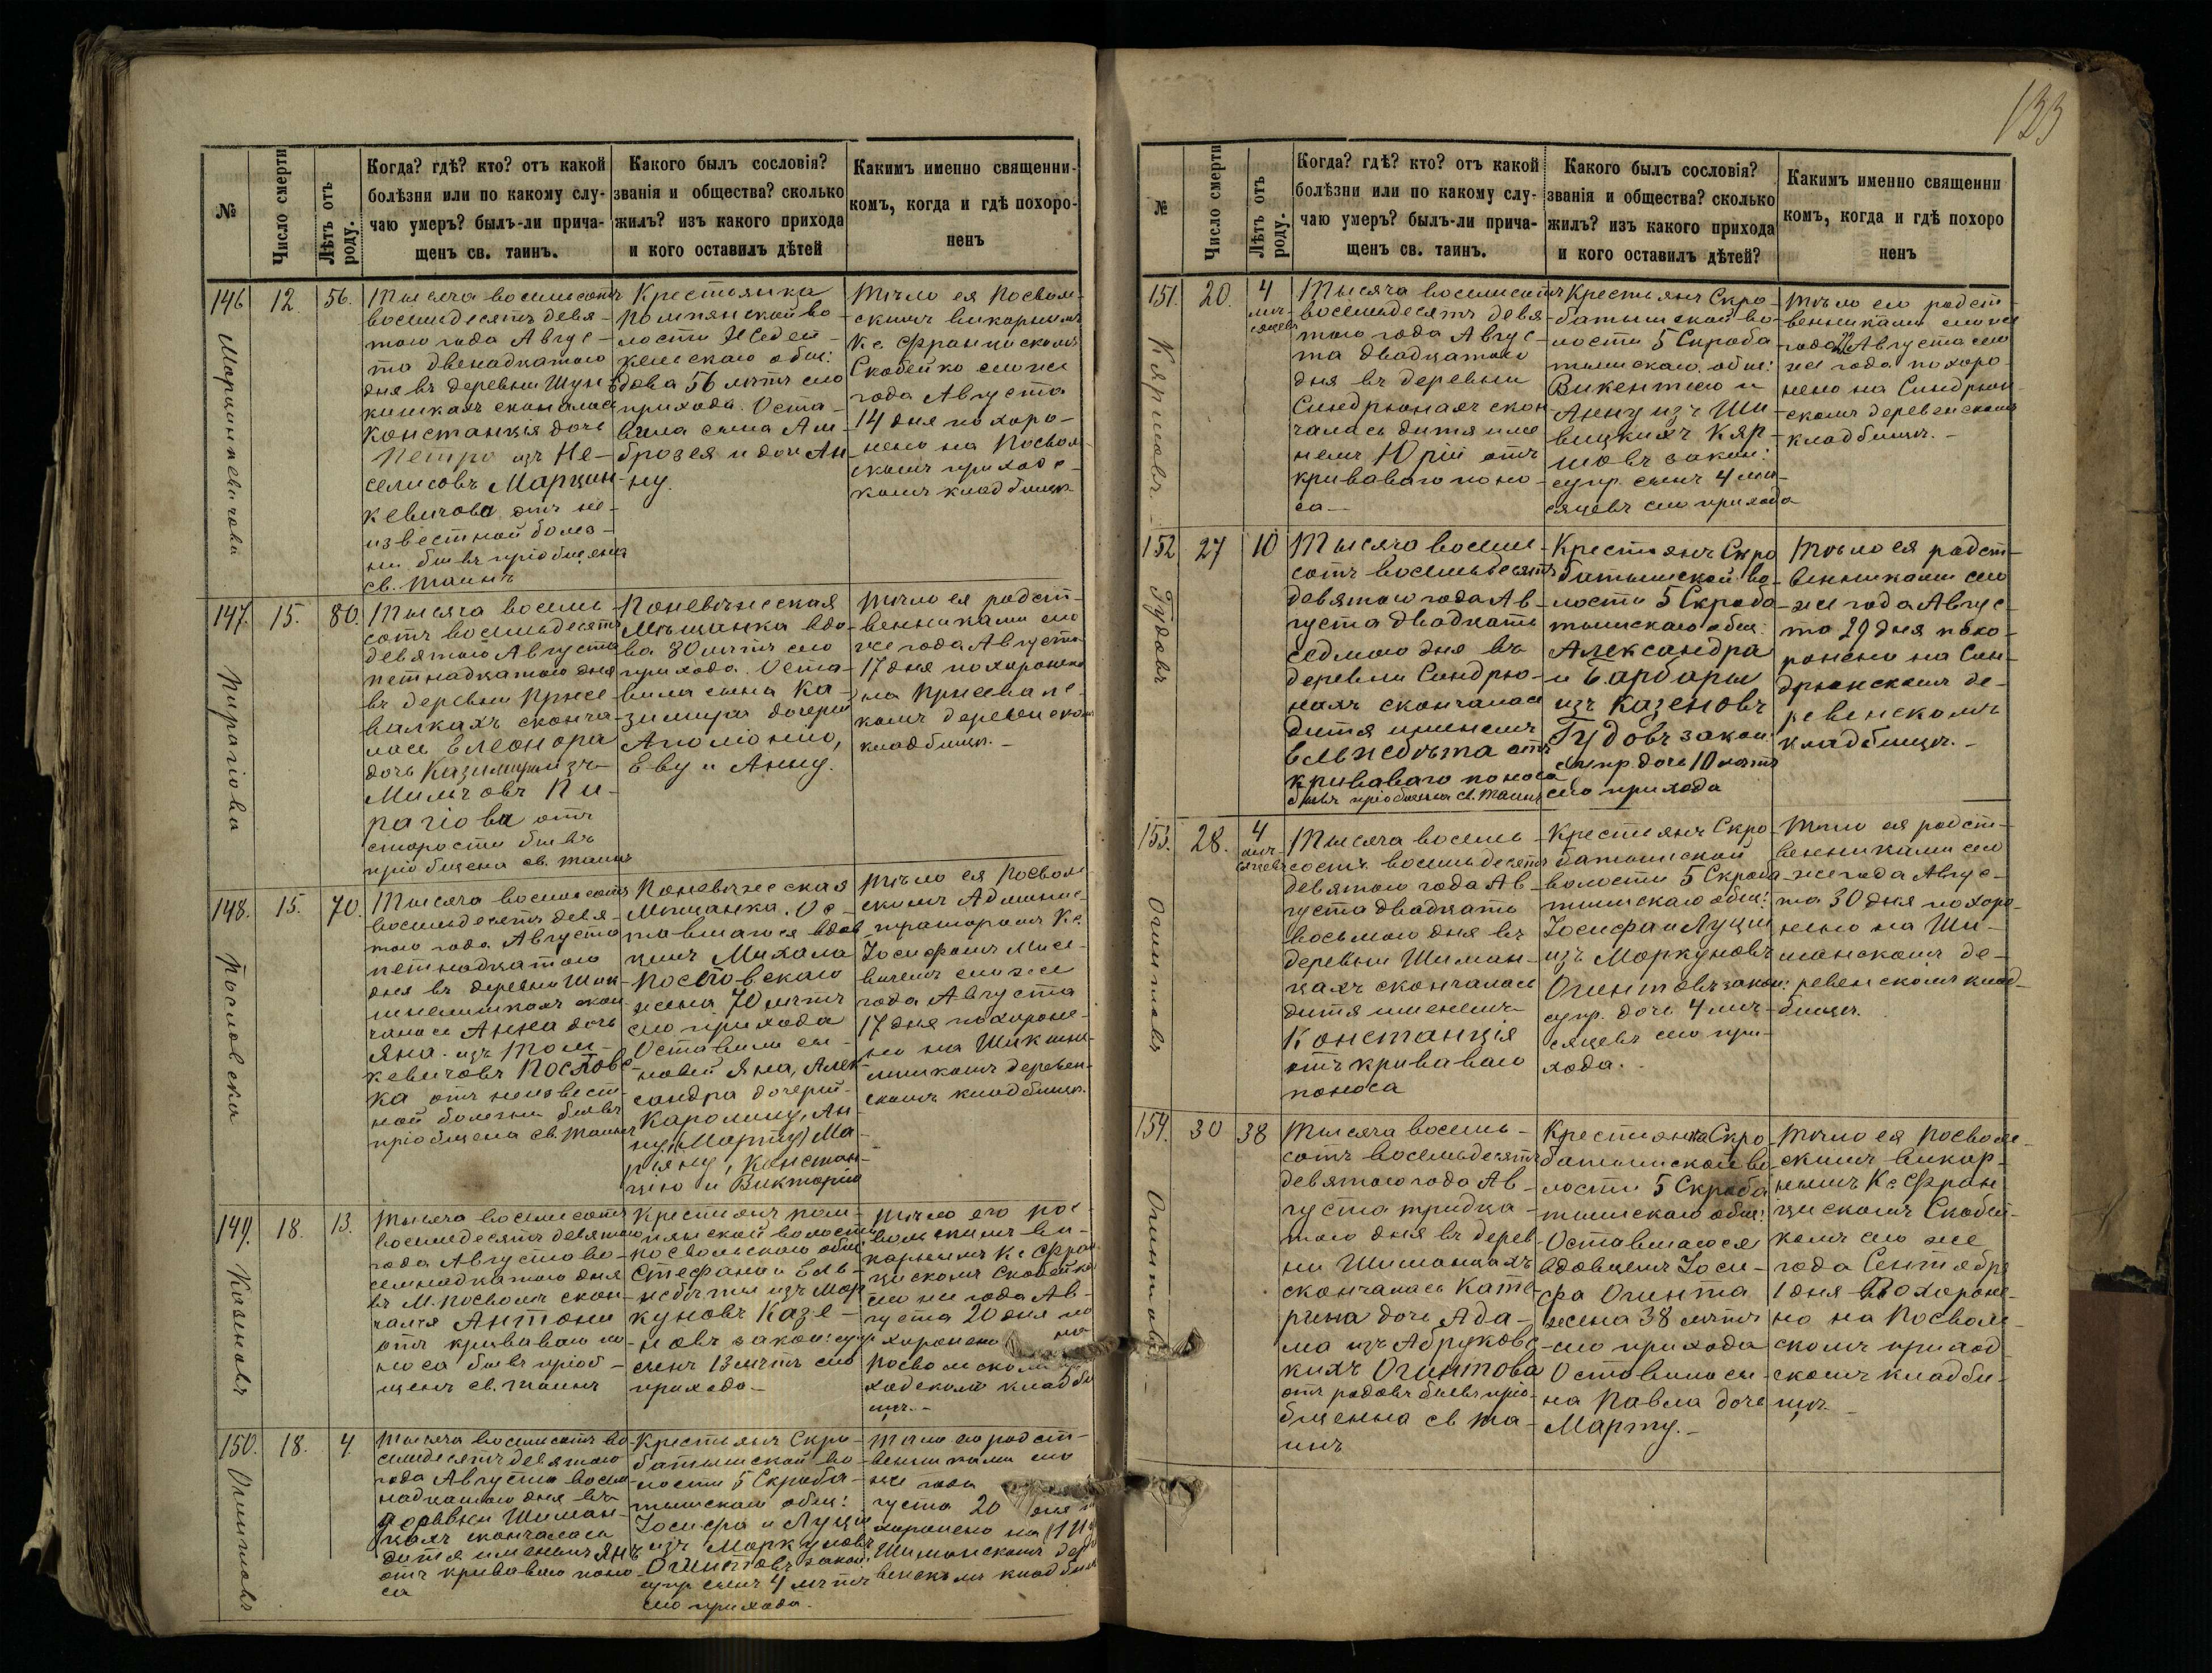 133
№
Число смерти
Лѣтъ отъ роду.
Когда? гдѣ? кто? отъ какой
болѣзни или по какому слу-
чаю умеръ? былъ-ли прича-
щенъ св. таинъ.
Какого былъ сословія?
званія и общества? сколько
жилъ? изъ какого прихода
и кого оставилъ дѣтей
Каким​ъ именно священни-
комъ, когда и гдѣ похоро-
ненъ
146
12
56.
Тысяча восемьсотъ
восемьдесятъ девя-
того года Авгус-
та двенадцатого
дня въ деревни
скончалась
Констанція дочь
Петра изъ Не-
селисовъ Марцин-
кевичова отъ не-
известной болез-
ни бывъ пріобщена
св. Таинъ
Крестьянка
Помпянской во-
лости
общ:
вдова 56 летъ сего
прихода. Оста-
вила сына Ам-
брозея и дочь Ан-
ну.
Тѣло ея Посволь-
скимъ викарнымъ
Кс. Францискомъ
Скобейко сего же
года Августа
14 дня похоро-
нено на Посволь-
скомъ приходс-
комъ кладбищѣ
147.
15.
80.
Пирагіова
Тысяча восемь-
сотъ восемьдесятъ
девятого Августа
петнадцатого дня
въ деревни Присе-
валкахъ сконча-
лась Елеонора
дочь Казимира изъ
Милчовъ Пи-
рагіова отъ
старости бывъ
пріобщена св. таинъ
Поневѣжеская
Мѣщанка вдо-
ва 80 летъ сего
прихода. Оста-
вила сына Ка-
зимира дочери
Аполіонію,
Еву и Анну.
Тѣло ея родст-
венниками сего
же года Августа
17 дня похоронено
на
комъ деревенскомъ
кладбищѣ.
148.
15.
70.
Пословска
Тысяча восемьсотъ
восемьдесятъ девя-
того года Августа
петнадцатого
дня въ деревни
скон-
чалась Анна дочь
Яна изъ Том-
кевичовъ Постовс-
ка отъ неизвест-
ной болезни бывъ
пріобщена св. Таинъ
Поневѣжеская
Мѣщанка. Ос-
тавшагося вдов-
цемъ Михала
Постовскаго
жена 70 летъ
сего прихода
Оставила сы-
новей Яна, Алек-
сандра дочерей
Каролину, Ан-
ну, Марту, Ма-
ріяну, Констан-
цію и Викторію
Тѣло ея Посволь-
скимъ Админис-
траторомъ Кс.
Іосифомъ
сего же
года Августа
17 дня похороне-
но на
деревен-
скомъ кладбищѣ.
149.
18.
13.
Казеновъ
Тысяча восемьсотъ
восемьдесятъ девятого
года Августа во-
семнадцатого дня
въ М. Посволѣ скон-
чался Антони
отъ кроваваго по-
носа бывъ пріоб-
щенъ св. таинъ
Крестьянъ Пом-
пянской волости
Посвольскаго общ:
Стефана и Ель-
жбѣты изъ Мор-
куновъ Казе-
новъ закон: супр
сынъ 13 летъ сего
прихода.
Тѣло его Пос-
вольскимъ ви-
карнымъ Кс Фран-
цискомъ Скобейко
сего же года Ав-
густа 20 дня по
хоронено на
Посвольскомъ при
ходскомъ кладби
щѣ.
150.
18.
4
Огинтовъ
Тысяча восемьсотъ во-
семьдесятъ девятого
года Августа восем-
надцатого дня въ
деревни Шиман-
цахъ скончалось
дитя именемъ Янъ
отъ кроваваго поно-
са
Крестьянъ Скро-
батышской во-
лости 5 Скроба-
тышскаго общ:
Іосифа и Луціи
изъ Моркуновъ
Огинтовъ закон:
супр сынъ 4 летъ
сего прихода.
Тѣло его родст-
венниками сего
же года
густа 20 дня по
хоронено на
Шиманскомъ дер
венскомъ кладбищ
№
Число смерти
Лѣтъ отъ роду.
Когда? гдѣ? кто? отъ какой
болѣзни или по какому слу-
чаю умеръ? былъ-ли прича-
щенъ св. таинъ.
Какого былъ сословія?
званія и общества? сколько
жилъ? изъ какого прихода
и кого оставилъ дѣтей?
Какимъ именно священни
комъ, когда и гдѣ похоро
ненъ
151.
20.
4
мѣ-
сяцевъ
Кяршовъ
Тысяча восемьсотъ
восемьдесятъ девя-
того года Авгус-
та двадцатого
дня въ деревни
Синдрюнахъ скон
чалась дитя име
немъ Юрій отъ
кроваваго поно-
са
Крестьянъ Скро-
батышской во-
лости 5 Скроба-
тышскаго общ:
Викентія и
Анны изъ Ши-
вицкихъ Кяр-
шовъ закон:
супр. сынъ 4 мѣ-
сяцевъ сего прихода
Тѣло его родст-
венниками сего же
года 22 Августа сего
же года похоро-
нено на Синдрюн-
скомъ деревенскомъ
кладбищѣ.
152
27
10
Гудовъ
Тысяча восемь-
сотъ восемьдесятъ
девятого года Ав-
густа двадцать
седмого дня въ
деревни Синдрю-
нахъ скончалась
дитя именемъ
Ельжбѣта отъ
кроваваго поноса
бывъ пріобщена св. таинъ
Крестьянъ Скро
батышской во-
лости 5 Скроба-
тышскаго общ:
Александра
и Барбары
изъ Казеновъ
Гудовъ закон:
супр. дочь 10 летъ
сего прихода
Тѣло ея родст-
венниками сего
же года Авгус-
та 29 дня похо-
ронено на Син-
дрюнскомъ де-
ревенскомъ
кладбищѣ.
153.
28.
4
мѣ-
сяцевъ
Огинтовъ
Тысяча восемь-
сотъ восемьдесятъ
девятого года Ав-
густа двадцать
восьмого дня въ
деревни Шиман-
цахъ скончалась
дитя именемъ
Констанція
отъ кроваваго
поноса
Крестьянъ Скро
батышской
волости 5 Скроба
тышскаго общ:
Іосифа и Луціи
изъ Моркуновъ
Огинтовъ закон:
супр. дочь 4 мѣ-
сяцевъ сего при-
хода.
Тѣло ея родст-
венниками сего
же года Авгус-
та 30 дня похоро-
нено на Ши-
манскомъ де-
ревенскомъ клад-
бищѣ.
154.
30
38
Огинтова
Тысяча восемь-
сотъ восемьдесятъ
девятого года Ав-
густа тридца-
того дня въ дерев-
ни Шиманцахъ
скончалась Кате-
рина дочь Ада-
ма изъ Абруковс-
кихъ Огинтова
отъ родовъ бывъ пріо-
бщенна св та-
инъ
Крестьянка Скро
батышской во-
лости 5 Скроба
тышскаго общ:
Оставшагося
вдовцемъ Іоси-
фа Огинта
жена 38 летъ
сего прихода
Оставила сы-
на Павла дочь
Марту.
Тѣло ея Посволь-
скимъ викар-
нымъ Кс Фран
цискомъ Скобей-
комъ сего же
года Сентября
1 дня похороне-
но на Посволь-
скомъ приход
скомъ кладби-
щѣ.